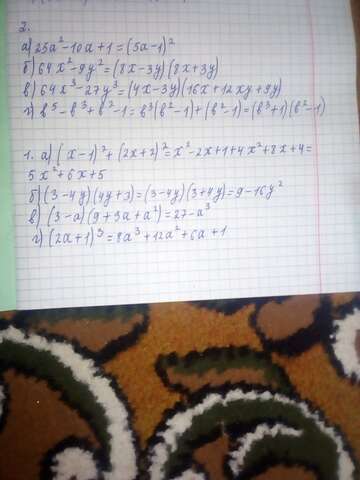 2.
а) 25a²-10a+1=(5a-1)²
б) 64x²-9y²=(8x-3y)(8x+3y)
в) 64x³-27y³=(4x-3y)(16x+12xy+9y)
г) b⁵-b³+b²-1=b³(b²-1)+(b²-1)=(b³+1)(b²-1)
1. а) (x-1)²+(2x+2)²=x²-2x+1+4x²+8x+4=
5x²+6x+5
б) (3-4y)(4y+3)=(3-4y)(3+4y)=9-16y²
в) (3-a)(9+3a+a²)=27-a³
г) (2a+1)³=8a³+12a²+6a+1